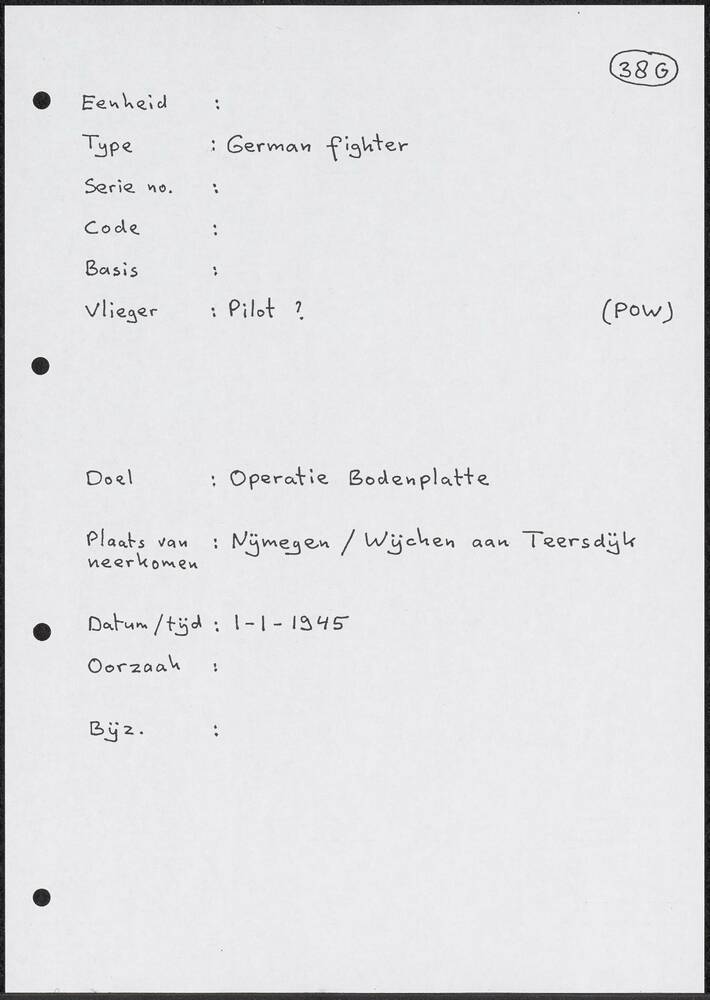 38G
Eenheid :
Type : German fighter
Serie no. :
Code :
Basis :
Vlieger : Pilot ? (POW)
Doel : Operatie Bodenplatte
Plaats van : Nijmegen / Wijchen aan Teersdijk
neerkomen
Datum/tijd : 1-1-1945
Oorzaak :
Bijz. :